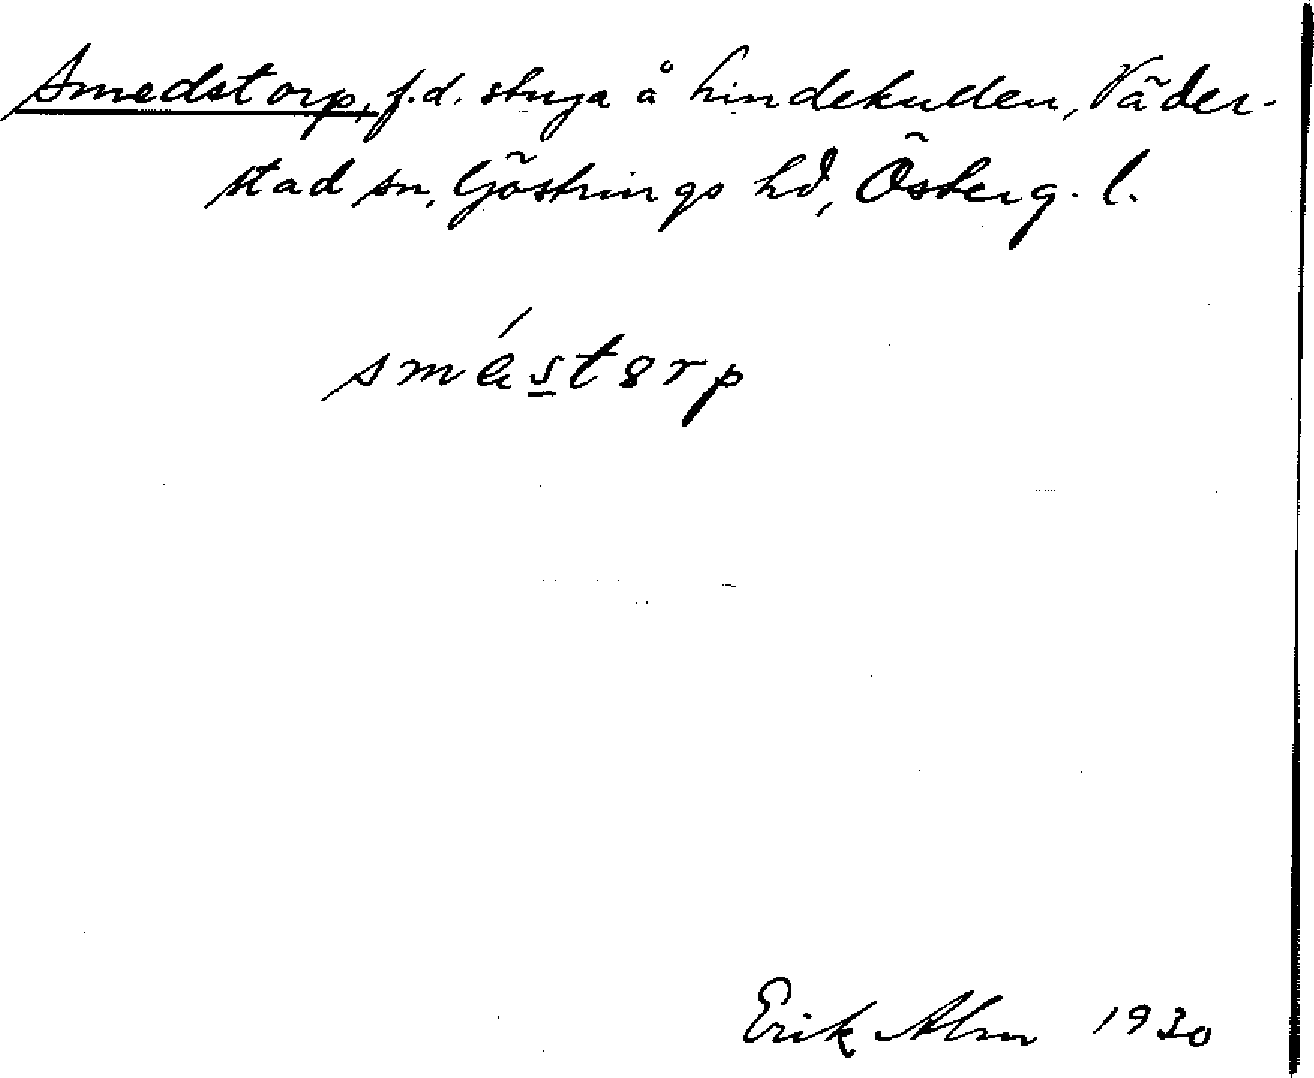 Smedstorp, f.d. stuga å Lindekullen, Väder-
stad sn, Göstrings hd, Österg. l.
smést8rp
Erik Alm 1930